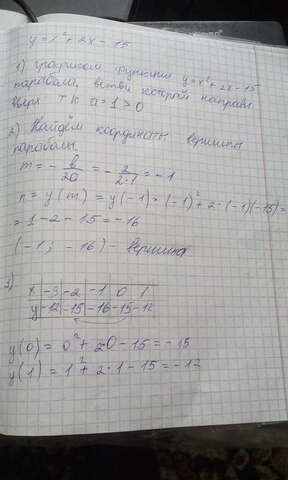 y = x² + 2x - 15
1) графиком функции y = x² + 2x - 15
парабола, ветви которой направл
вверх т к a = 1 > 0
2) Найдём координаты вершины
параболы.
m = - b/2a = - 2/2·1 = -1
n = y(m) = y(-1) = (-1)² + 2·(-1)(-15) =
= 1 - 2 - 15 = -16
(-1; -16) - вершина
3)
x | -3 | -2 | -1 | 0 | 1
y | -12 | -15 | -16 | -15 | -12
y(0) = 0² + 2·0 - 15 = -15
y(1) = 1² + 2·1 - 15 = -12